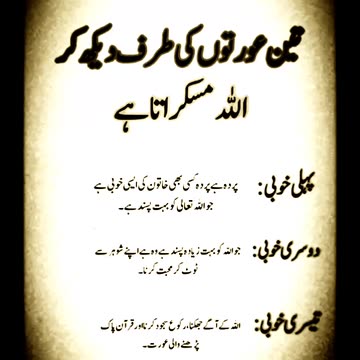 تین عورتوں کی طرف دیکھ کر
اللہ مسکراتا ہے
پہلی خوبی: پردہ ہے پردہ کسی بھی خاتون کی ایسی خوبی ہے
جو اللہ تعالی کو بہت پسند ہے۔
دوسری خوبی: جو اللہ کو بہت زیادہ پسند ہے وہ ہے اپنے شوہر سے
ٹوٹ کر محبت کرنا۔
تیسری خوبی: اللہ کے آگے جھکنا، رکوع سجود کرنا اور قرآن پاک
پڑھنے والی عورت۔